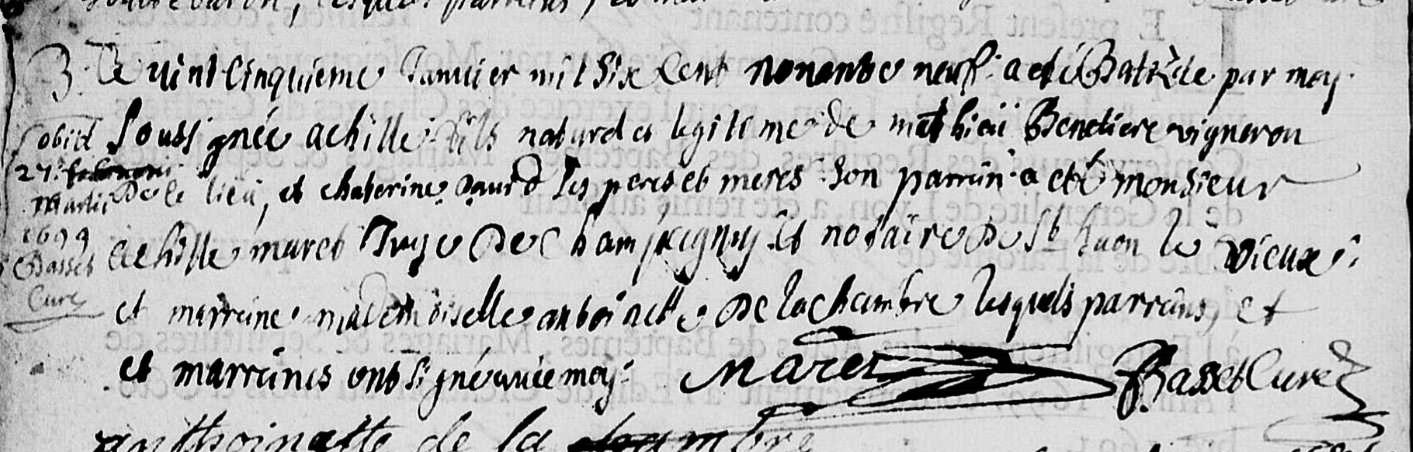 B. Le vint cinquieme Januier mil six cent nonente neuf. a eté Batizé par moy.
soussignée achille fils naturel et legitime de mathieü Benetiere vigneron
de ce lieü, et chaterine les peres et meres. Son parrin a eté monsieur
achille maret Juge de Champagny et notaire de St huon le vieux.
et marreine mademoiselle de la chambre lesquels parrins, et
et marreines ont signé auec moy. Maret Basset Curé
obiit
27.
martii
1699
Basset
Curé
anthoinette de la chambre